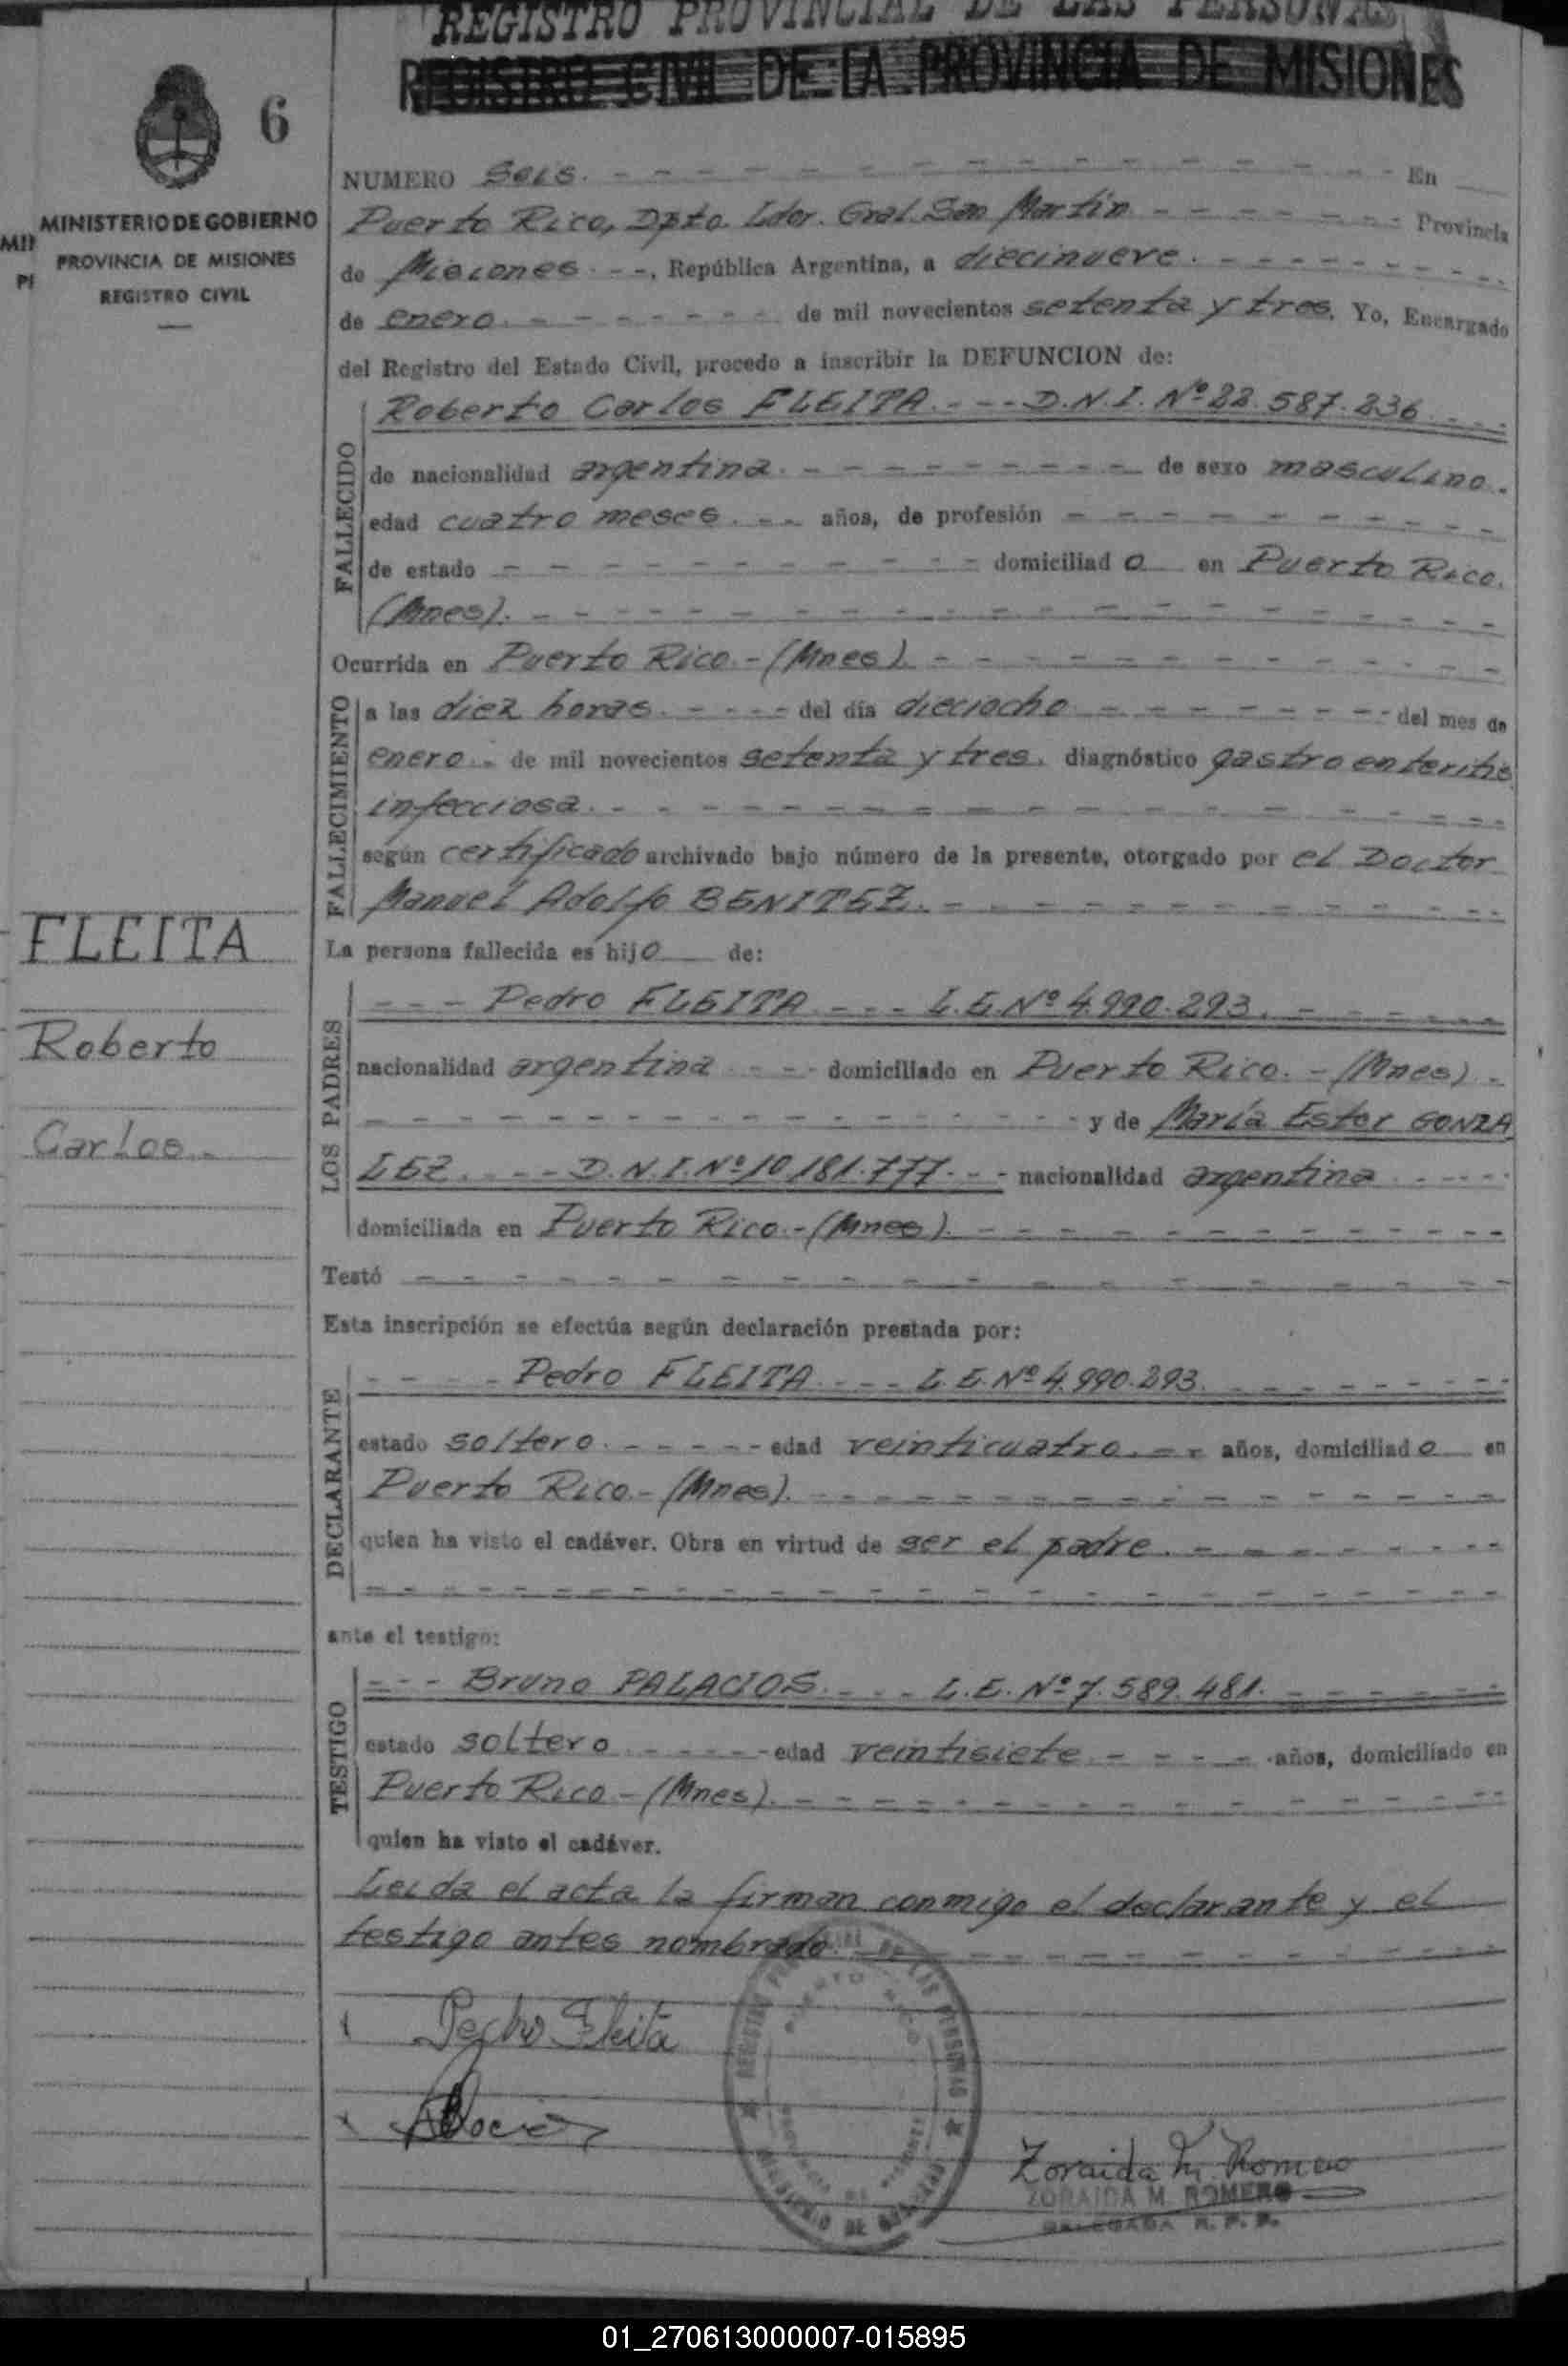 REGISTRO PROVINCIAL DE LAS PERSONAS
REGISTRO CIVIL DE LA PROVINCIA DE MISIONES
6
MINISTERIO DE GOBIERNO
PROVINCIA DE MISIONES
REGISTRO CIVIL
NUMERO Seis. En
Puerto Rico, Dpto. Ldor. Gral. San Martín Provincia
de Misiones. - -, República Argentina, a diecinueve.
de enero. de mil novecientos setenta y tres. Yo, Encargado
del Registro del Estado Civil, procedo a inscribir la DEFUNCION de:
FALLECIDO
Roberto Carlos FLEITA. - - - D.N.I. Nº 22.587.236
de nacionalidad argentina. de sexo masculino.
edad cuatro meses. - - años, de profesión
de estado domiciliad o en Puerto Rico.
(Mnes).
Ocurrida en Puerto Rico.-(Mnes)
FALLECIMIENTO
a las diez horas. - - - - del día dieciocho del mes de
enero. - de mil novecientos setenta y tres. diagnóstico gastroenteritis
infecciosa.
según certificado archivado bajo número de la presente, otorgado por el Doctor
Manuel Adolfo BENITEZ.
FLEITA
Roberto
Carlos.-
La persona fallecida es hijo de:
LOS PADRES
- - - Pedro FLEITA - - - L.E. Nº 4.990.293.
nacionalidad argentina - - - domiciliado en Puerto Rico. - (Mnes). -
y de María Ester GONZA
LEZ. - - - D.N.I. Nº 10 181.777. - - nacionalidad argentina
domiciliada en Puerto Rico.-(Mnes).
Testó
Esta inscripción se efectúa según declaración prestada por:
DECLARANTE
- - - - Pedro FLEITA. - - - L.E. Nº 4.990.293.
estado soltero. - - - - - edad veinticuatro. - - años, domiciliad o en
Puerto Rico.-(Mnes).
quien ha visto el cadáver. Obra en virtud de ser el padre.
ante el testigo:
TESTIGO
- - - Bruno PALACIOS. - - - L.E. Nº 7.589.481.
estado soltero - - - - - edad veintisiete. - - - - años, domiciliado en
Puerto Rico - (Mnes).
quien ha visto el cadáver.
Leida el acta la firman conmigo el declarante y el
testigo antes nombrado.
Pedro Fleita
Zoraida M. Romero
ZORAIDA M. ROMERO
DELEGADA R. P. P.
REGISTRO PROVINCIAL DE LAS PERSONAS
PUERTO RICO
PROVINCIA DE MISIONES
MINISTERIO DE GOBIERNO
01_270613000007-015895